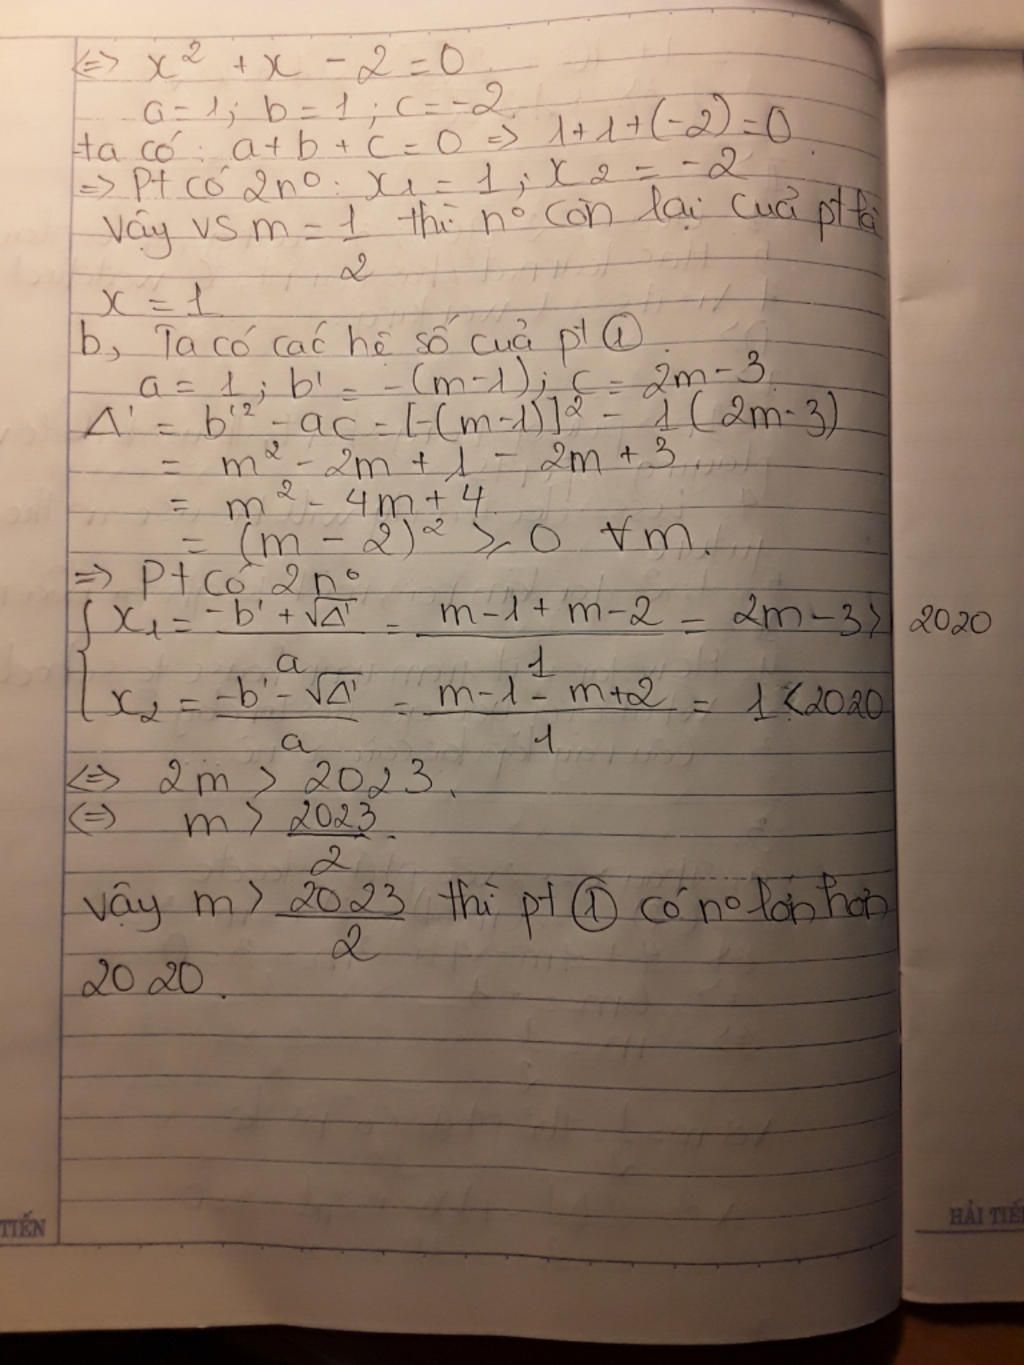 <=> x² + x - 2 = 0
a = 1; b = 1; c = -2
ta có: a + b + c = 0 => 1 + 1 + (-2) = 0
=> Pt có 2 n⁰: x₁ = 1; x₂ = -2
Vậy vs m = 1/2 thì n⁰ còn lại của pt là
x = 1
b, Ta có các hệ số của pt ①
a = 1; b' = -(m-1); c = 2m-3
Δ' = b'² - ac = [-(m-1)]² - 1(2m-3)
= m² - 2m + 1 - 2m + 3
= m² - 4m + 4
= (m - 2)² ≥ 0 ∀m.
=> Pt có 2 n⁰
{ x₁ = (-b' + √Δ')/a = (m-1+m-2)/1 = 2m-3 > 2020
x₂ = (-b' - √Δ')/a = (m-1-m+2)/1 = 1 < 2020
<=> 2m > 2023.
<=> m > 2023/2.
vậy m > 2023/2 thì pt ① có n⁰ lớn hơn
2020.
TIẾN
HẢI TIẾ